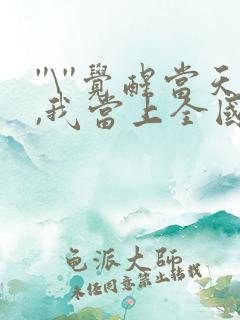 "\"覺醒當天
,我當上全國
龟派大師
未经同意禁止转载